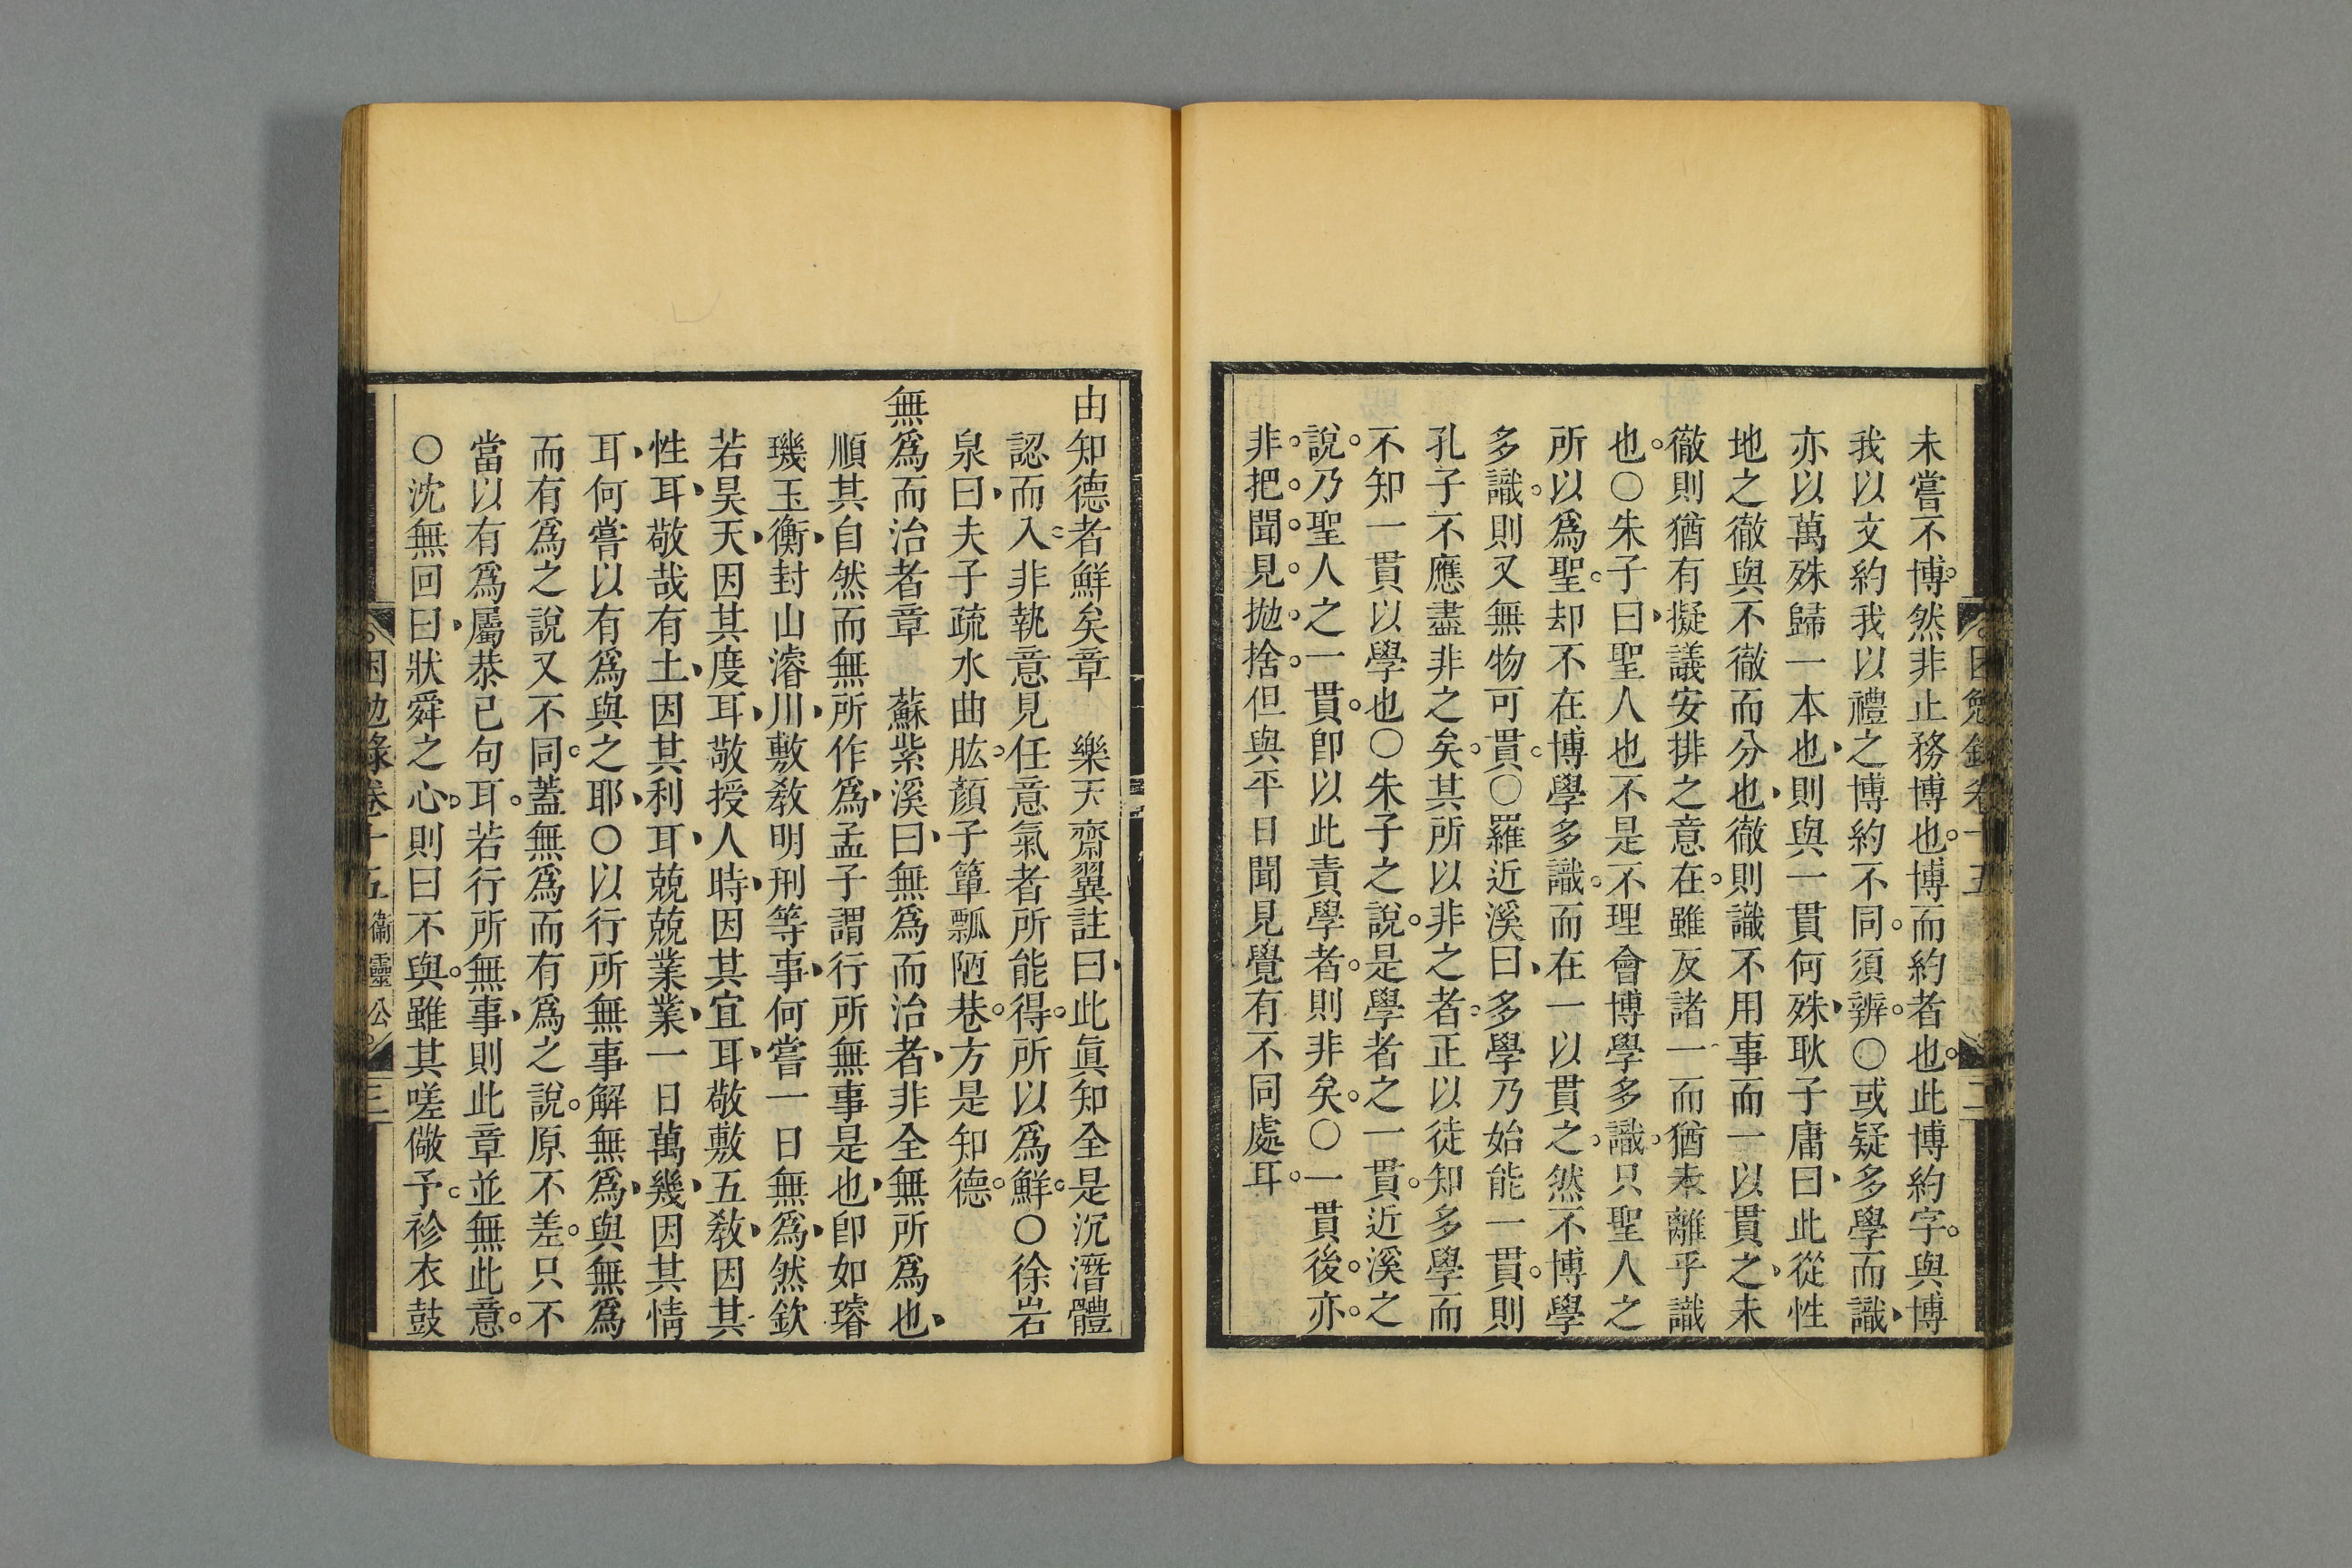 未嘗不博。然非止務博也。博而約者也。此博約字。與博
我以文約我以禮之博約不同。須辨。○或疑多學而識、
亦以萬殊歸一本也、則與一貫何殊、耿子庸曰、此從性
地之徹與不徹而分也、徹則識不用事而一以貫之、未
徹則猶有擬議安排之意在。雖反諸一而猶未離乎識
也。○朱子曰、聖人也不是不理會博學多識。只聖人之
所以為聖。却不在博學多識。而在一以貫之、然不博學
多識。則又無物可貫。○羅近溪曰、多學乃始能一貫。則
孔子不應盡非之矣。其所以非之者。正以徒知多學而
不知一貫以學也○朱子之說。是學者之一貫。近溪之
說。乃聖人之一貫。卽以此責學者。則非矣。○一貫後。亦。
非。把。聞。見。拋。捨。但與平日聞見覺有不同處耳。
困勉錄卷十五 二
由知德者鮮矣章　樂天齋翼註曰、此眞知全是沉潛體
認而入。非執意見任意氣者所能得。所以爲鮮。○徐岩
泉曰、夫子疏水曲肱。顏子簞瓢陋巷。方是知德。
無爲而治者章　蘇紫溪曰、無爲而治者、非全無所爲也、
順其自然而無所作爲、孟子謂行所無事是也、卽如璿
璣玉衡、封山濬川、敷敎明刑等事、何嘗一日無爲、然欽
若昊天、因其度耳、敬授人時、因其宜耳、敬敷五敎、因其
性耳、敬哉有土、因其利耳、兢兢業業、一日萬幾、因其情
耳、何嘗以有爲與之耶、○以行所無事解無爲、與無爲
而有爲之說又不同。蓋無爲而有爲之說。原不差。只不
當以有爲屬恭已句耳。若行所無事、則此章並無此意。
○沈無回曰、狀舜之心。則曰不與。雖其嗟儆予。袗衣鼓
困勉錄卷十五 衛靈公 三